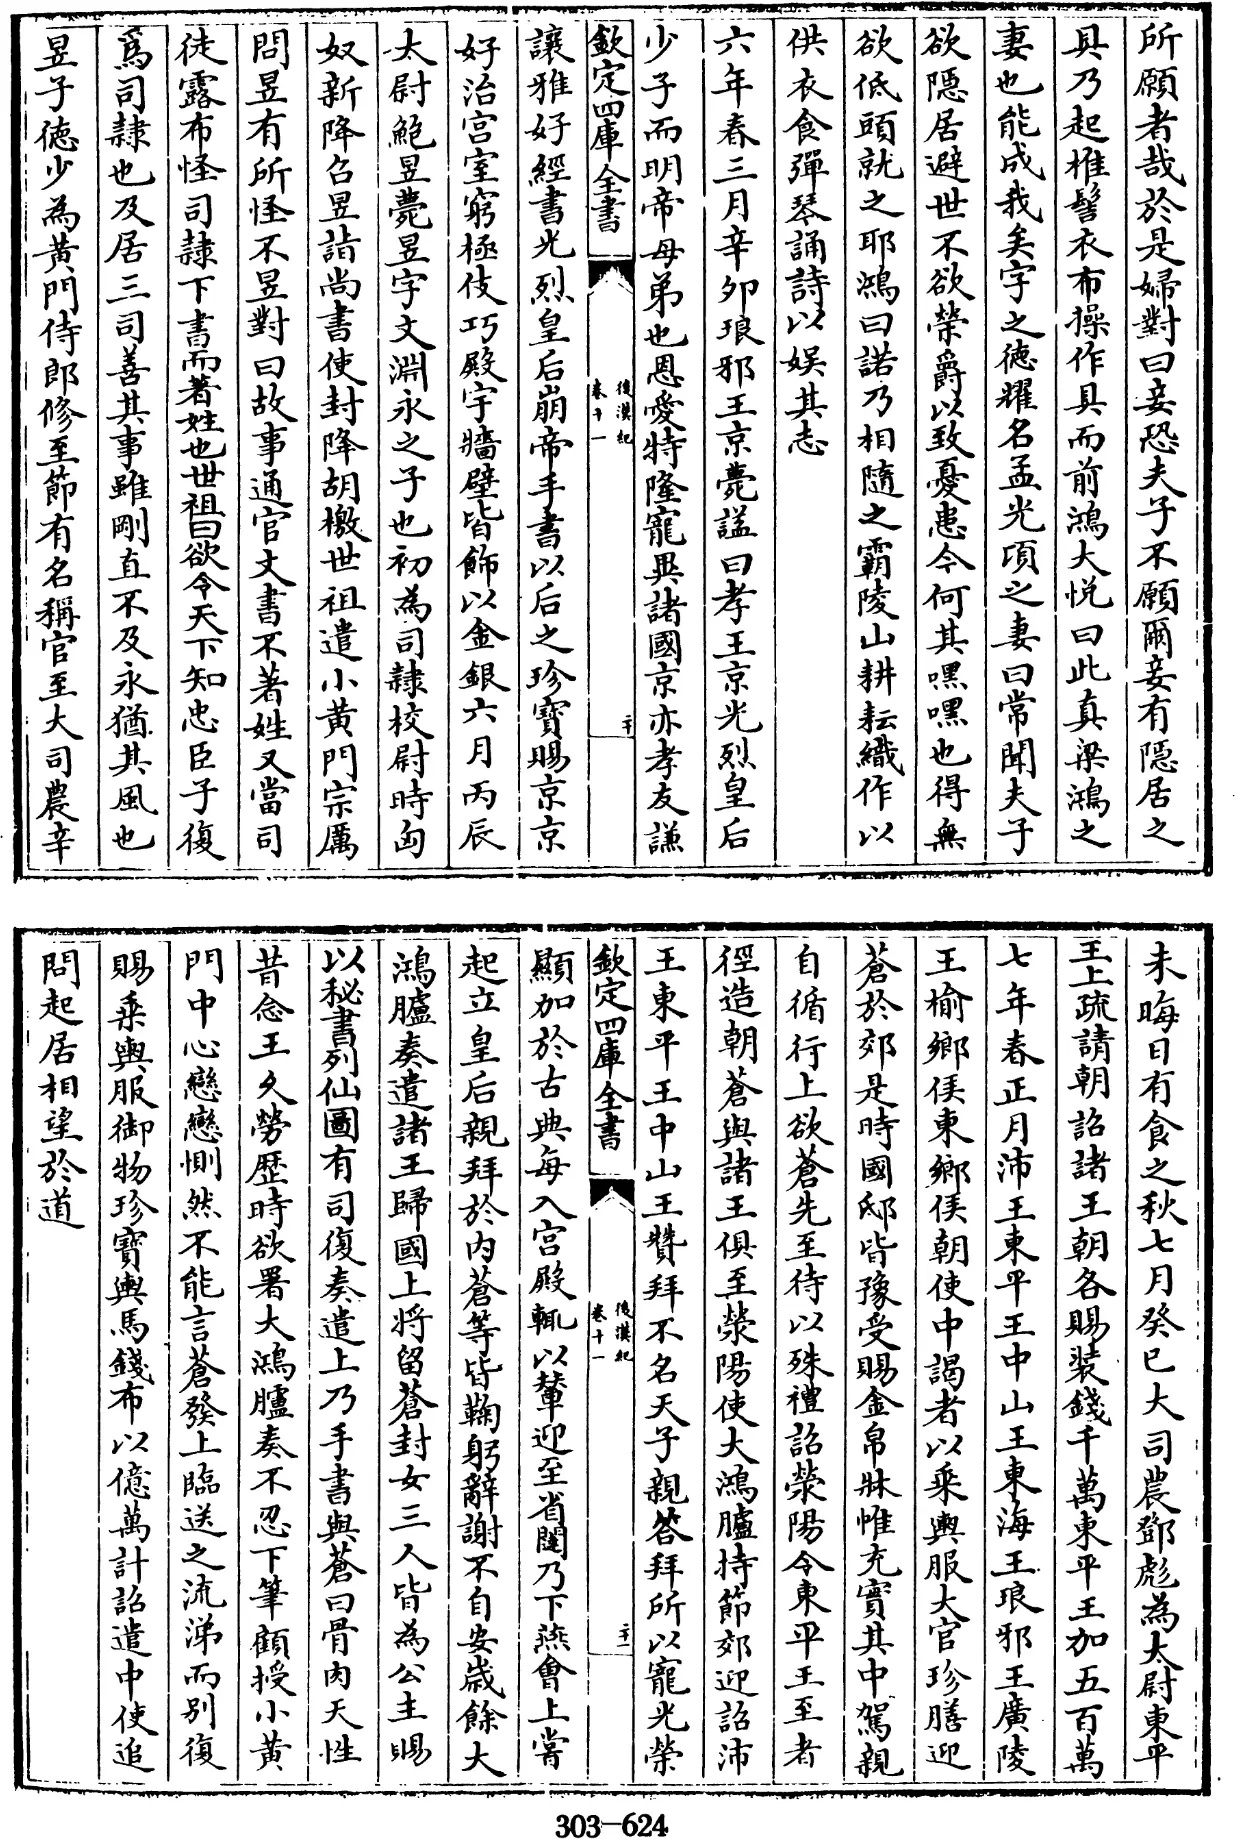 所願者哉於是婦對曰妾恐夫子不願爾妾有隱居之
具乃起椎髻衣布操作具而前鴻大悅曰此真梁鴻之
妻也能成我矣字之德耀名孟光頃之妻曰常聞夫子
欲隱居避世不欲榮爵以致憂患今何其嘿嘿也得無
欲低頭就之耶鴻曰諾乃相隨之霸陵山耕耘織作以
供衣食彈琴誦詩以娛其志
六年春三月辛卯琅邪王京薨謚曰孝王京光烈皇后
少子而明帝母弟也恩愛特隆寵異諸國京亦孝友謙
欽定四庫全書
後漢紀
卷十一
二十
讓雅好經書光烈皇后崩帝手書以后之珍寶賜京京
好治宮室窮極伎巧殿宇牆壁皆飾以金銀六月丙辰
太尉鮑昱薨昱字文淵永之子也初為司隸校尉時匈
奴新降召昱詣尚書使封降胡檄世祖遣小黃門宗厲
問昱有所怪不昱對曰故事通官文書不著姓又當司
徒露布怪司隸下書而著姓也世祖曰欲令天下知忠臣子復
爲司隸也及居三司善其事雖剛直不及永猶其風也
昱子德少為黃門侍郎修至節有名稱官至大司農辛
未晦日有食之秋七月癸巳大司農鄧彪為太尉東平
王上疏請朝詔諸王朝各賜裝錢千萬東平王加五百萬
七年春正月沛王東平王中山王東海王琅邪王廣陵
王榆鄉侯東鄉侯朝使中謁者以乘輿服大官珍膳迎
蒼於郊是時國邸皆豫受賜金帛牀帷充實其中駕親
自循行上欲蒼先至待以殊禮詔滎陽令東平王至者
徑造朝蒼與諸王俱至滎陽使大鴻臚持節郊迎詔沛
王東平王中山王贊拜不名天子親答拜所以寵光榮
欽定四庫全書
後漢紀
卷十一
二十一
顯加於古典每入宮殿輒以輦迎至省閤乃下燕會上嘗
起立皇后親拜於內蒼等皆鞠躬辭謝不自安歲餘大
鴻臚奏遣諸王歸國上將留蒼封女三人皆為公主賜
以秘書列仙圖有司復奏遣上乃手書與蒼曰骨肉天性
昔念王久勞歷時欲署大鴻臚奏不忍下筆顧授小黃
門中心戀戀惻然不能言蒼發上臨送之流涕而別復
賜乘輿服御物珍寶輿馬錢布以億萬計詔遣中使追
問起居相望於道
303-624